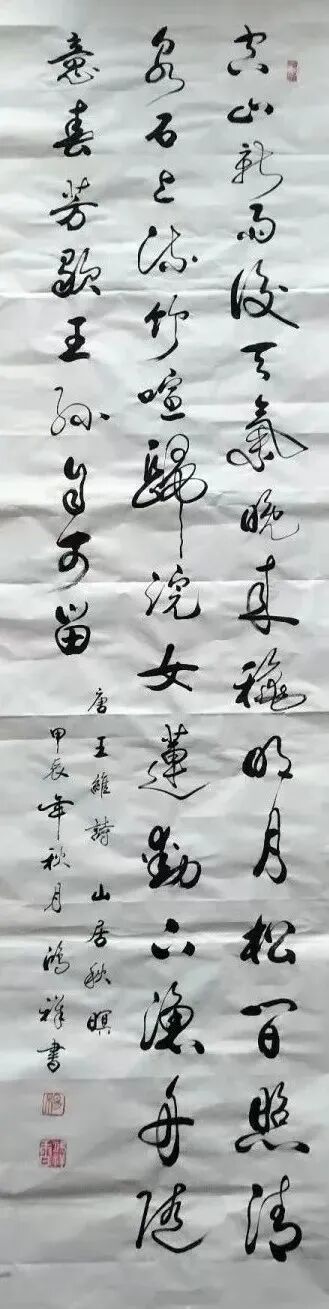 空山新雨後天氣晚来秋明月松間照清
泉石上流竹喧歸浣女蓮動下漁舟随
意春芳歇王孫自可留
唐王維詩 山居秋暝
甲辰年秋月鴻祥書